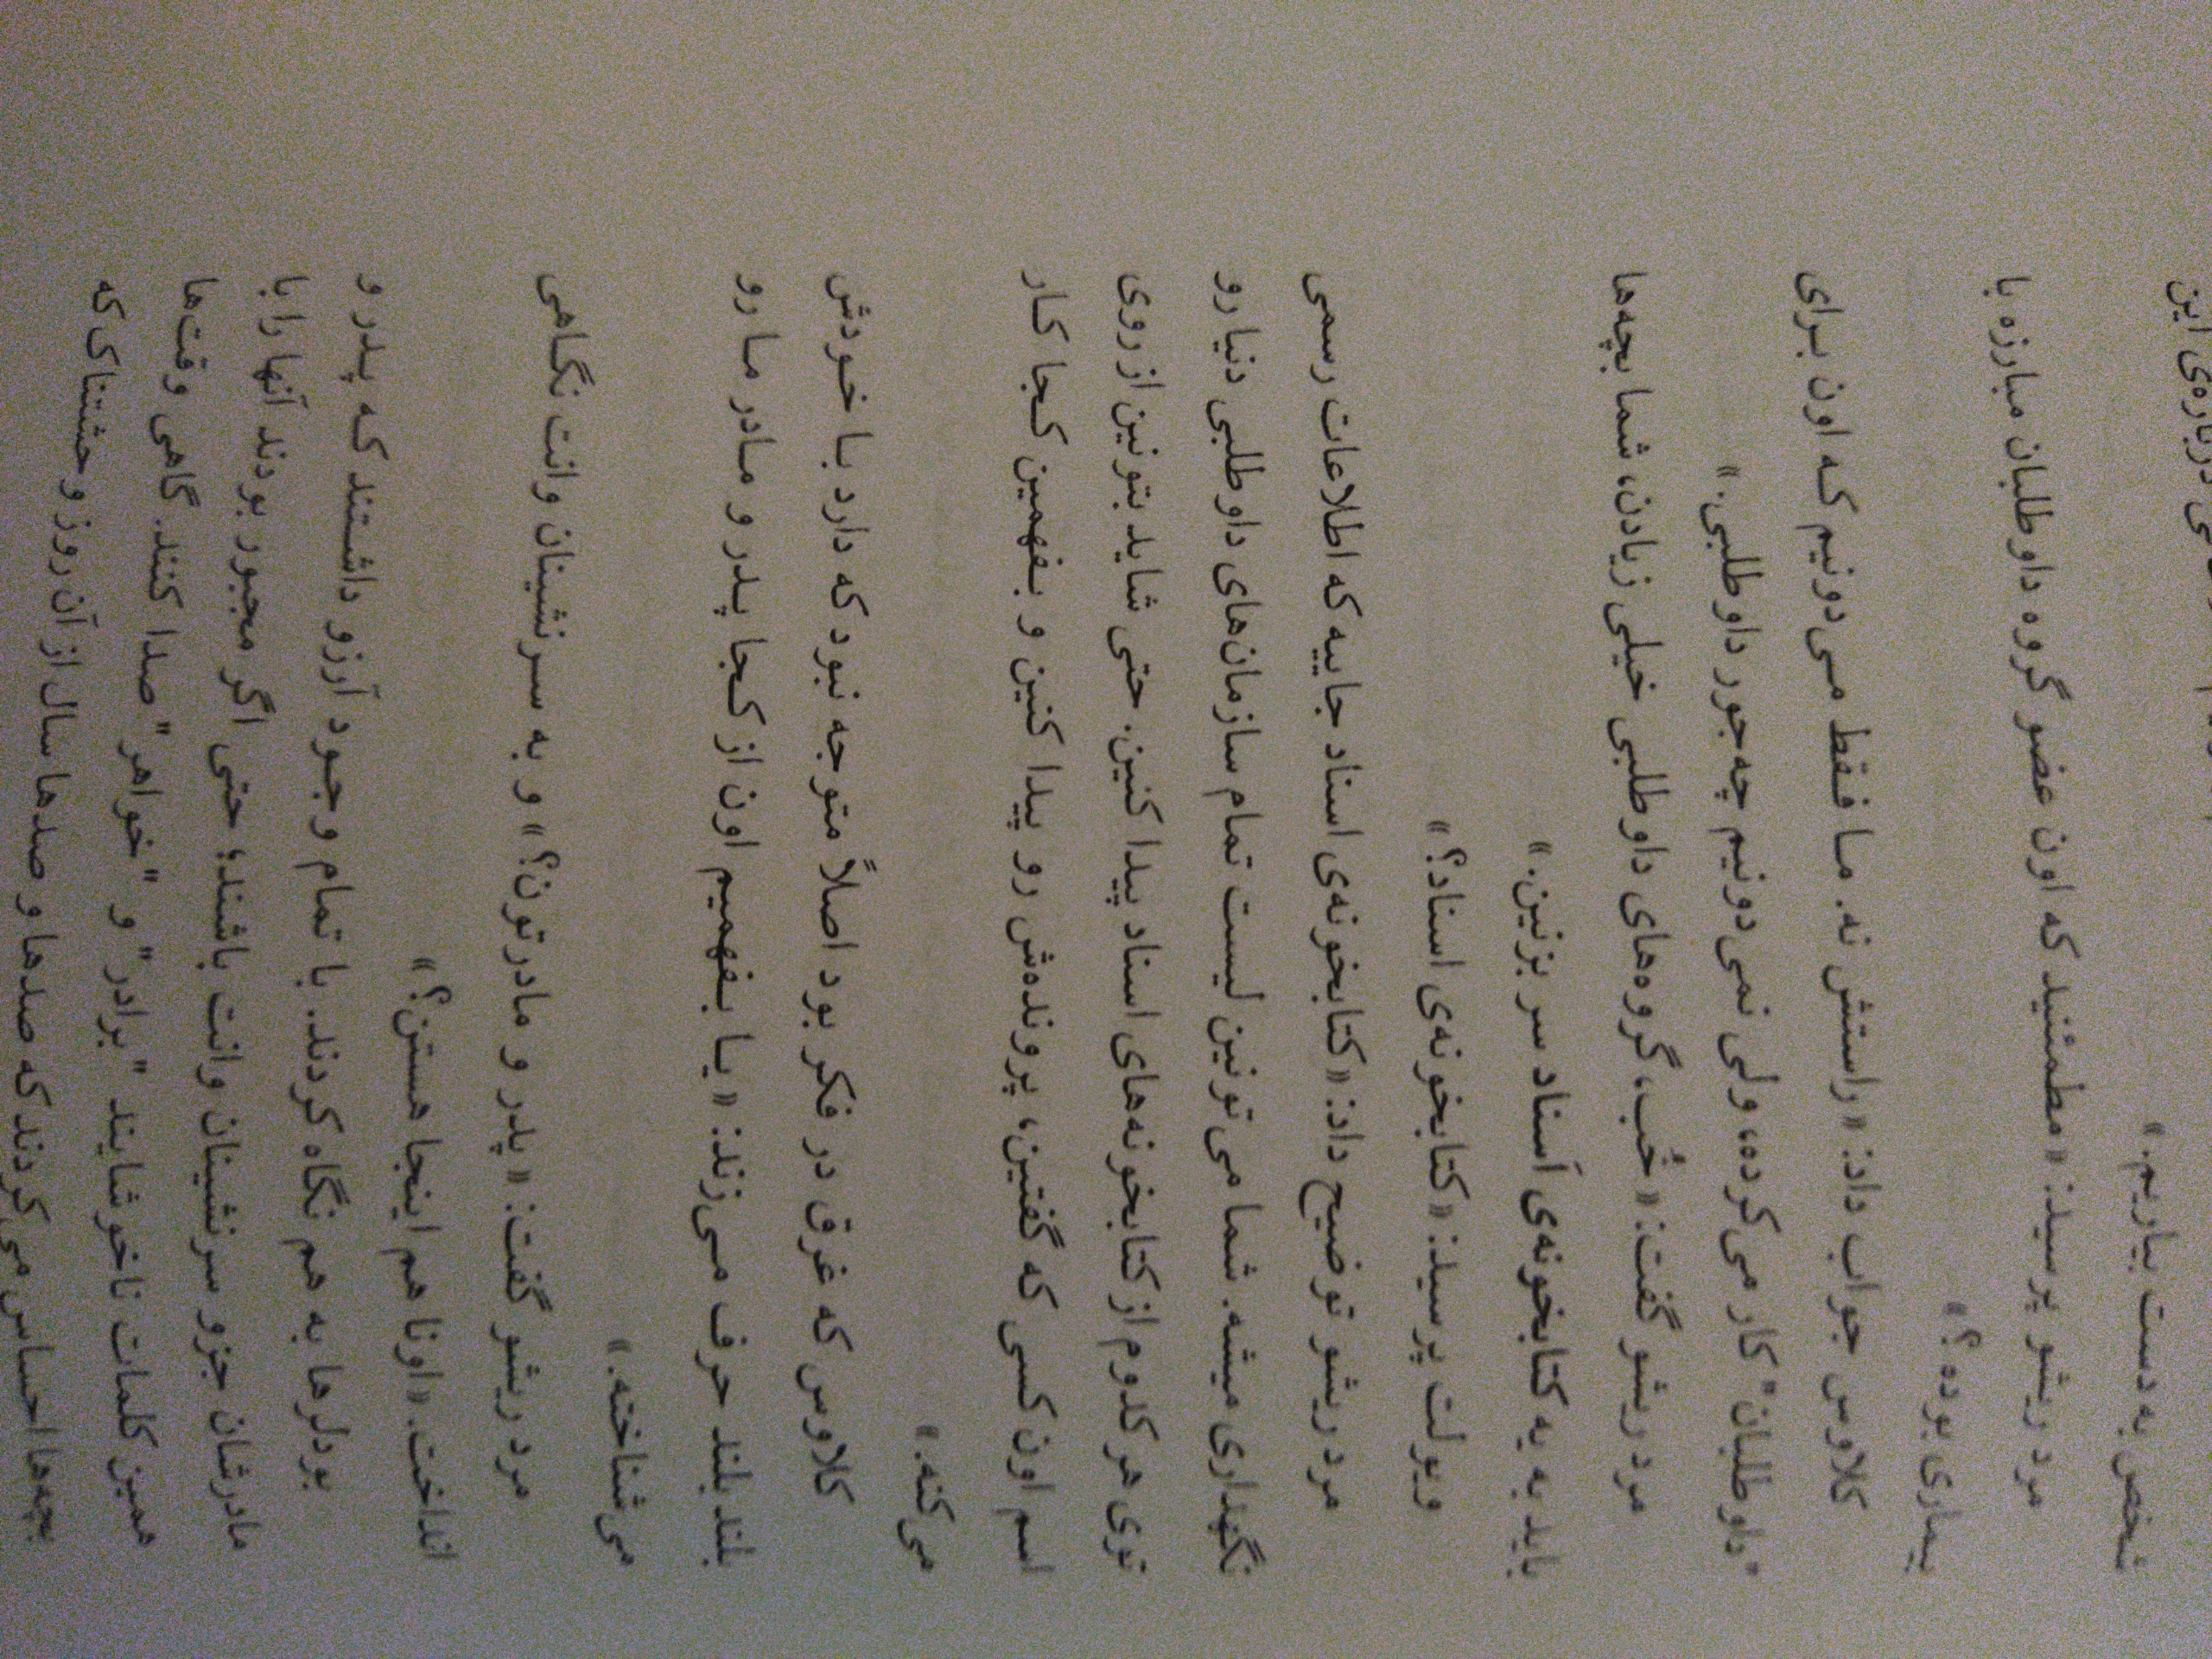 درباره‌ی این
شخص به دست بیاریم.»
مرد ریشو پرسید: «مطمئنید که اون عضو گروه داوطلبان مبارزه با
بیماری بوده؟»
کلاوس جواب داد: «راستش نه. ما فقط می‌دونیم که اون برای
"داوطلبان" کار می‌کرده، ولی نمی‌دونیم چه جور داوطلبی.»
مرد ریشو گفت: «خُب، گروه‌های داوطلبی خیلی زیادن، شما بچه‌ها
باید به یه کتابخونه‌ی اَسناد سر بزنین.»
ویولت پرسید: «کتابخونه‌ی اسناد؟»
مرد ریشو توضیح داد: «کتابخونه‌ی اسناد جاییه که اطلاعات رسمی
نگهداری میشه. شما می‌تونین لیست تمام سازمان‌های داوطلبی دنیا رو
توی هر کدوم از کتابخونه‌های اسناد پیدا کنین. حتی شاید بتونین از روی
اسم اون کسی که گفتین، پرونده‌ش رو پیدا کنین و بفهمین کجا کار
می‌کنه.»
کلاوس که غرق در فکر بود اصلاً متوجه نبود که دارد با خودش
بلند بلند حرف می‌زند: «یا بفهمیم اون از کجا پدر و مادر ما رو
می‌شناخته.»
مرد ریشو گفت: «پدر و مادرتون؟» و به سرنشینان وانت نگاهی
انداخت. «اونا هم اینجا هستن؟»
بودلرها به هم نگاه کردند. با تمام وجود آرزو داشتند که پدر و
مادرشان جزو سرنشینان وانت باشند؛ حتی اگر مجبور بودند آنها را با
همین کلمات ناخوشایند "برادر" و "خواهر" صدا کنند. گاهی وقت‌ها
بچه‌ها احساس می‌کردند که صدها و صدها سال از آن روز وحشتناکی که